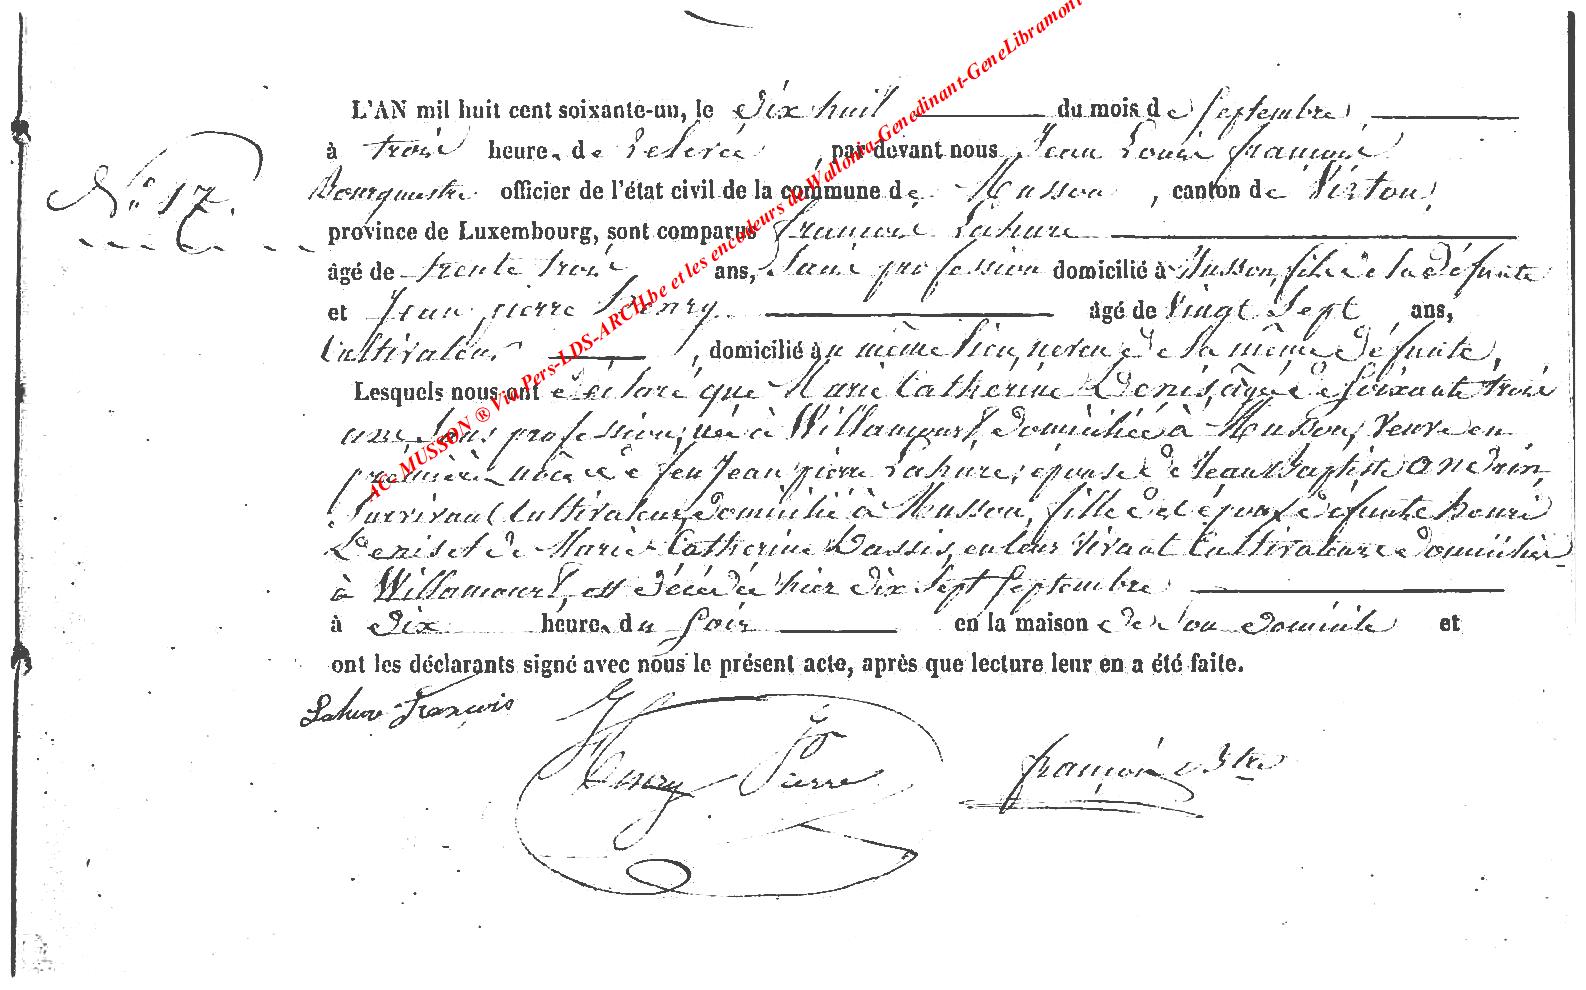 L'AN mil huit cent soixante-un, le dix huit du mois de Septembre,
à trois heure. de relevée, par devant nous Jean Louis françois
N.º 17.
Bourgmestre officier de l'état civil de la commune de Musson, canton de Virton,
province de Luxembourg, sont comparus françois Lahure
âgé de trente trois ans, sans profession domicilié à Musson, fils de la défunte
et Jean pierre henry âgé de Vingt Sept ans,
Cultivateur, domicilié au même lieu, neveu de la même défunte,
Lesquels nous ont déclaré que Marie Catherine Denis, âgée de Soixante trois
ans, Sans profession, née à Willancourt, domiciliée à Musson, Veuve en
première noce de feu Jean pierre Lahure, épouse de Jean Baptiste
Survivant Cultivateur domicilié à Musson, fille des époux défunts henri
Denis et de Marie Catherine Dassis, en leur vivant Cultivateurs domiciliés
à Willancourt, est décédée hier dix Sept Septembre
à dix heure. du Soir en la maison de Son domicile et
ont les déclarants signé avec nous le présent acte, après que lecture leur en a été faite.
Lahure françois
Henry Pierre
françois Btre
AC-MUSSON ® Via Pers-LDS-ARCH.be et les encodeurs de Wallonia-Genedinant-GeneLibramont